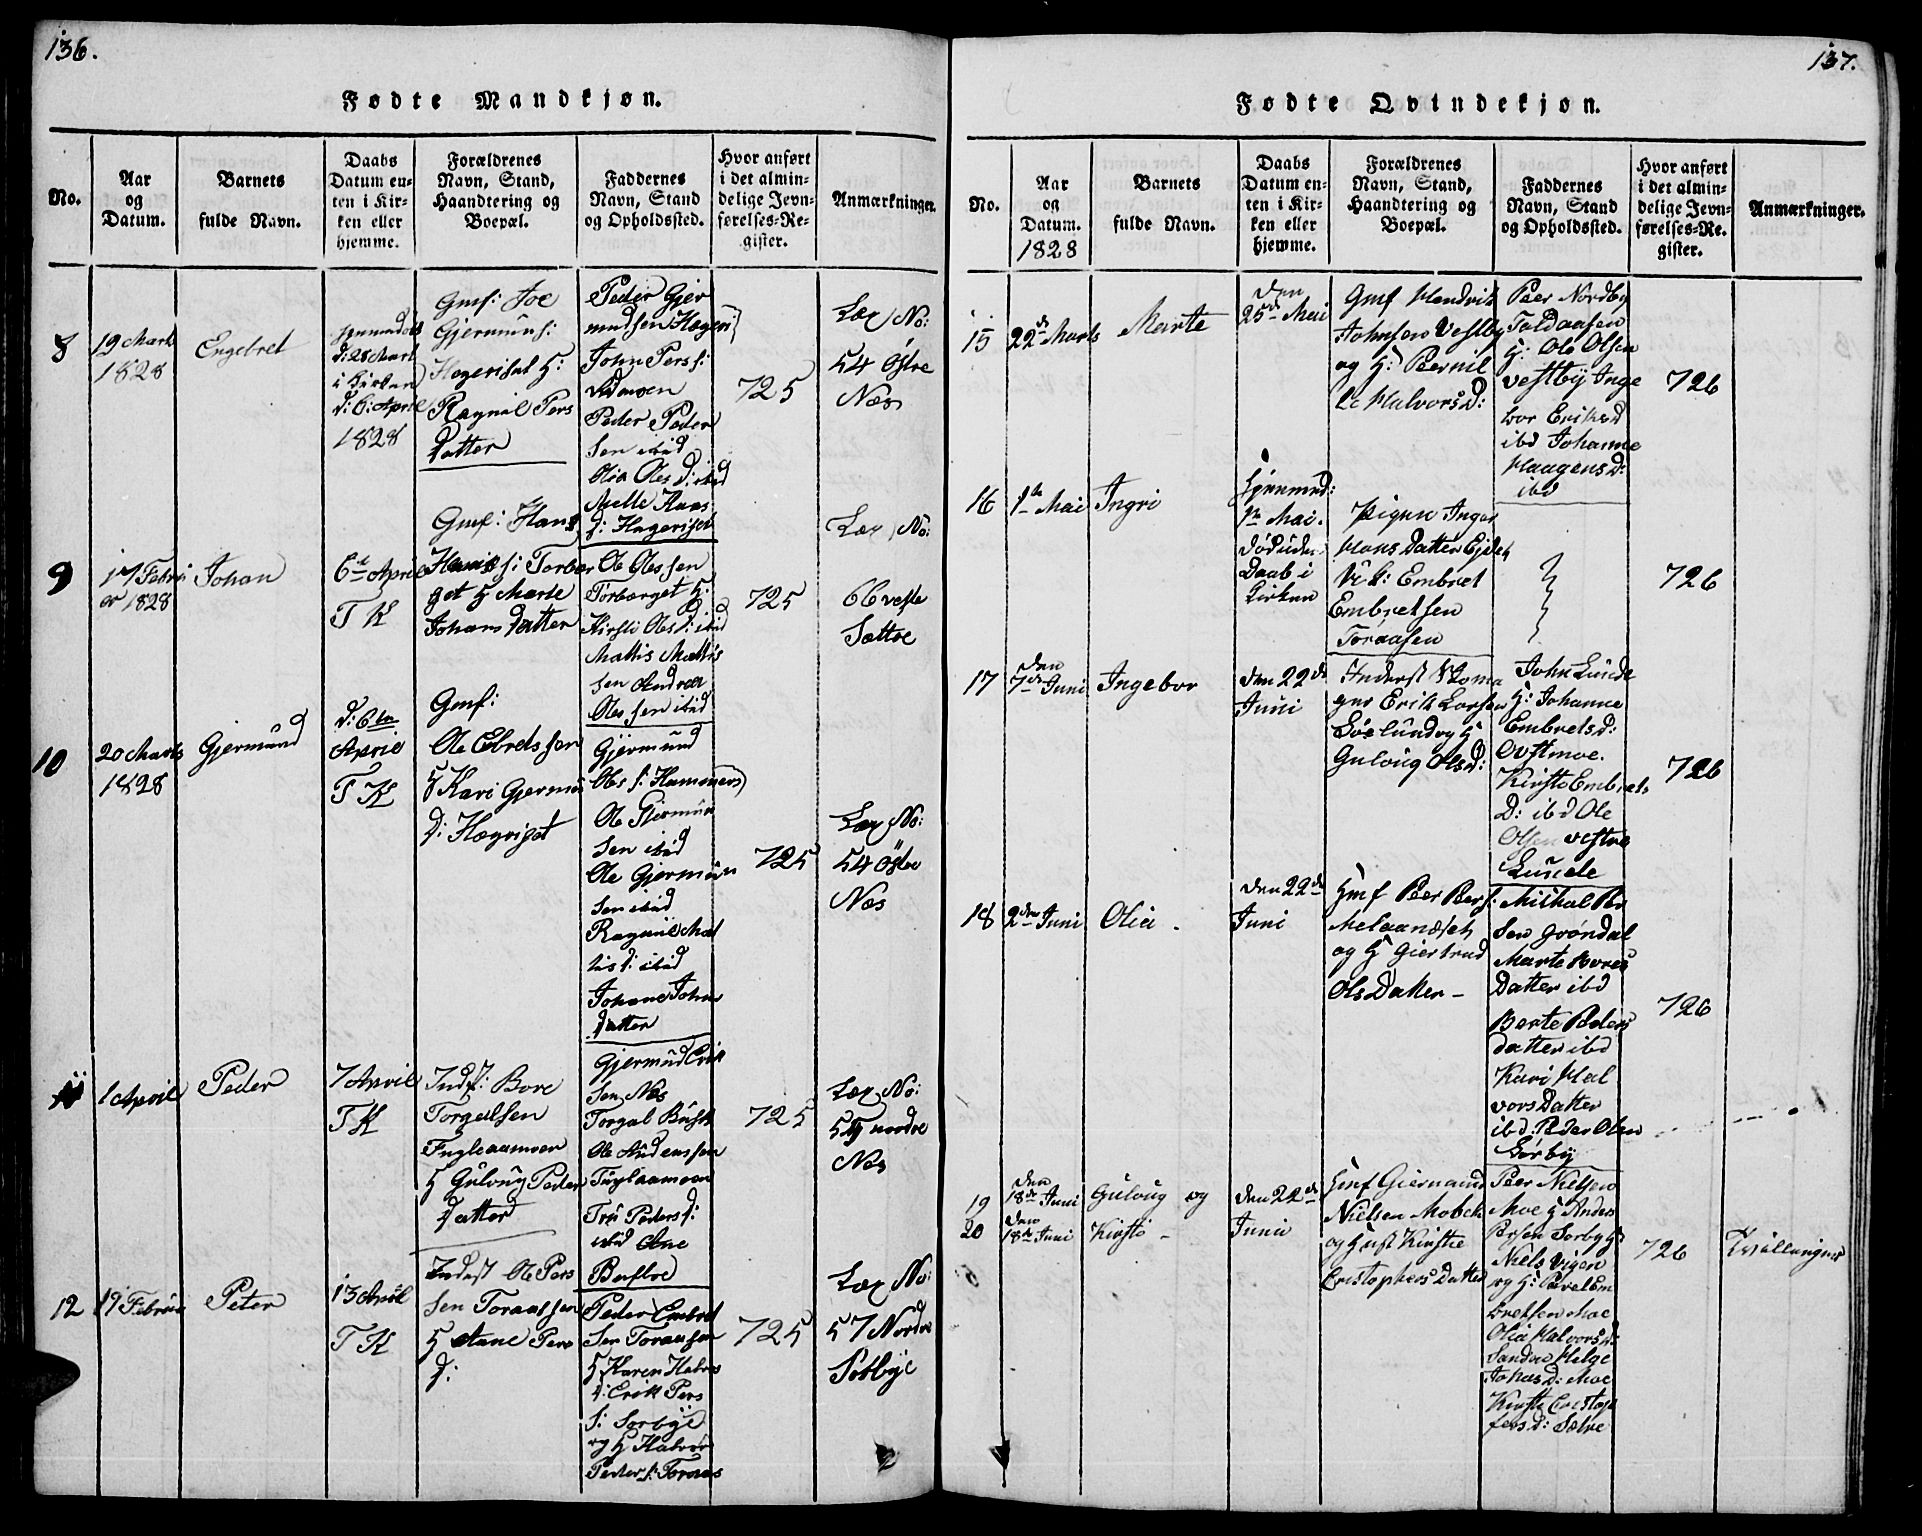 136.
Fødte Mandkjøn.
No.
Aar
og
Datum.
Barnets
fulde Navn.
Daabs
Datum en-
ten i Kir-
ken eller
hjemme.
Forældrenes
Navn, Stand,
Haandtering og
Boepæl.
Faddernes
Navn, Stand
og Opholdssted.
Hvor anført
i det almin-
delige Jevn-
førelses-Re-
gister.
Anmærkninger.
8
19 Marts
1828
Engebret
d: 28 Mart
i Kirken
d: 6: April
1828
Gmf: Joe
Gjermunds:
Hegeriset H:
Ragnil Pers
Datter
Peder Gjer
mundsen Hegeri
John Pers s:
Peder Peder
Sen ibid
Olia Oles D: ibid
D: Hegeriset
725
Læg No:
54 Østre
Næs
9
17 Febru
ar 1828
Johan
6te April
T K
Gmf: Hans
Hans s: Torber
get H Marte
Johans Datter
Ole Oles sen
Torberget H:
Kirsti Oles D: ibid
Mattis Mattis
sen Andrea
Oles sen ibid
725
Læg No:
66 vestre
Sættre
10
20 Marts
1828
Gjermund
d: 6te
April
T K
Gmf:
Ole Ebrets sen
H Kari Gjermun
D: Hegriset
Gjermund
Oles s: Hammers
Ole Gjermun
Sen ibid
Ole Gjermun
Sen ibid
Ragnil Mat
tis D: ibid
Johane Johns
Datter
725
Læg No:
54 Østre
Næs
11
1 April
Peder
7 April
T K
Indst: Bore
Torgalsen
Fugleaamoen
H Guloug Peder
Datter
Gjermund Erik
Sen Næs
Torgal
Ole Audens sen
Fuglaamoen
Peders D:
ibid Ane
725
Læg No:
54 nordre
Næs
12
19 Februar
Peter
13 April
T K
Indst Ole Pers
Sen Toraassen
H Anne Pers
D:
Peder Embret
Sen Toraasen
H Karen Halvors
D: Erik Pers
s: Sorbye
og H Halvor
Peder s: Toraas
725
Læg No:
57 Nordre
Sorbye
137.
Fødte Qvindekjøn.
No.
Aar
og
Datum.
1828
Barnets
fulde Navn.
Daabs
Datum en-
ten i Kir-
ken eller
hjemme.
Forældrenes
Navn, Stand,
Haandtering og
Boepæl.
Faddernes
Navn, Stand
og Opholdssted.
Hvor anført
i det almin-
delige Jevn-
førelses-Re-
gister.
Anmærkninger.
15
22de Marts
Marte
den
25de Mai
Gmf Hendrik
Johnsen Vestby
og H: Pernil
le Halvors D:
Peer Nordby
Toldaasen
H: Ole Olsen
Vestby Inge
bor Eriks D
ibd Johanne
Haagens D:
ibd
726
16
1te Mai
Ingri
hjemmed:
1te Mai.
Død uden
Daab i
Kirken
Pigen Inger
Hans Datter Ejdet
Embret
Embretsen
Toraasen
726
17
den
7de Juni
Ingebor
den 22de
Juni
Inderst
Erik Larsen
Lóelund og H
Guloug Ols D:
John Lunde
H: Johanne
Embrets D:
Ovstmoe.
Kirste Embrets
D: ibd Ole
Olsen Vestre
Lunde
726
18
2den Juni
Olia -
den 22de
Juni
Gmf Peer Pers:
Melaandset
og H Giertrud
Ols Datter -
Mikkel Per
Sen Grøndal
Marte Bores
Datter ibd
Berte Peders
datter ibd
Kari Hal
vors Datter
ibd. Peder Olsen
Lørby
726
19
den
18de Juni
Guloug og
20
den
18de Juni
Kirsti -
den 22de
Juni
Gmf Giermund
Nielsen Mobek
og Hust Kirstie
Cristophers Datter
Peer Nielsen
Moe H Anders
Persen Sorby H
Niels Vigen
og H: Povel Em
bretsen Moe
Olia Halvors D:
Sandvn Helge
Johns D: Moe
Kirsti Cristop
fers D: Sætre
726
Tvillinger